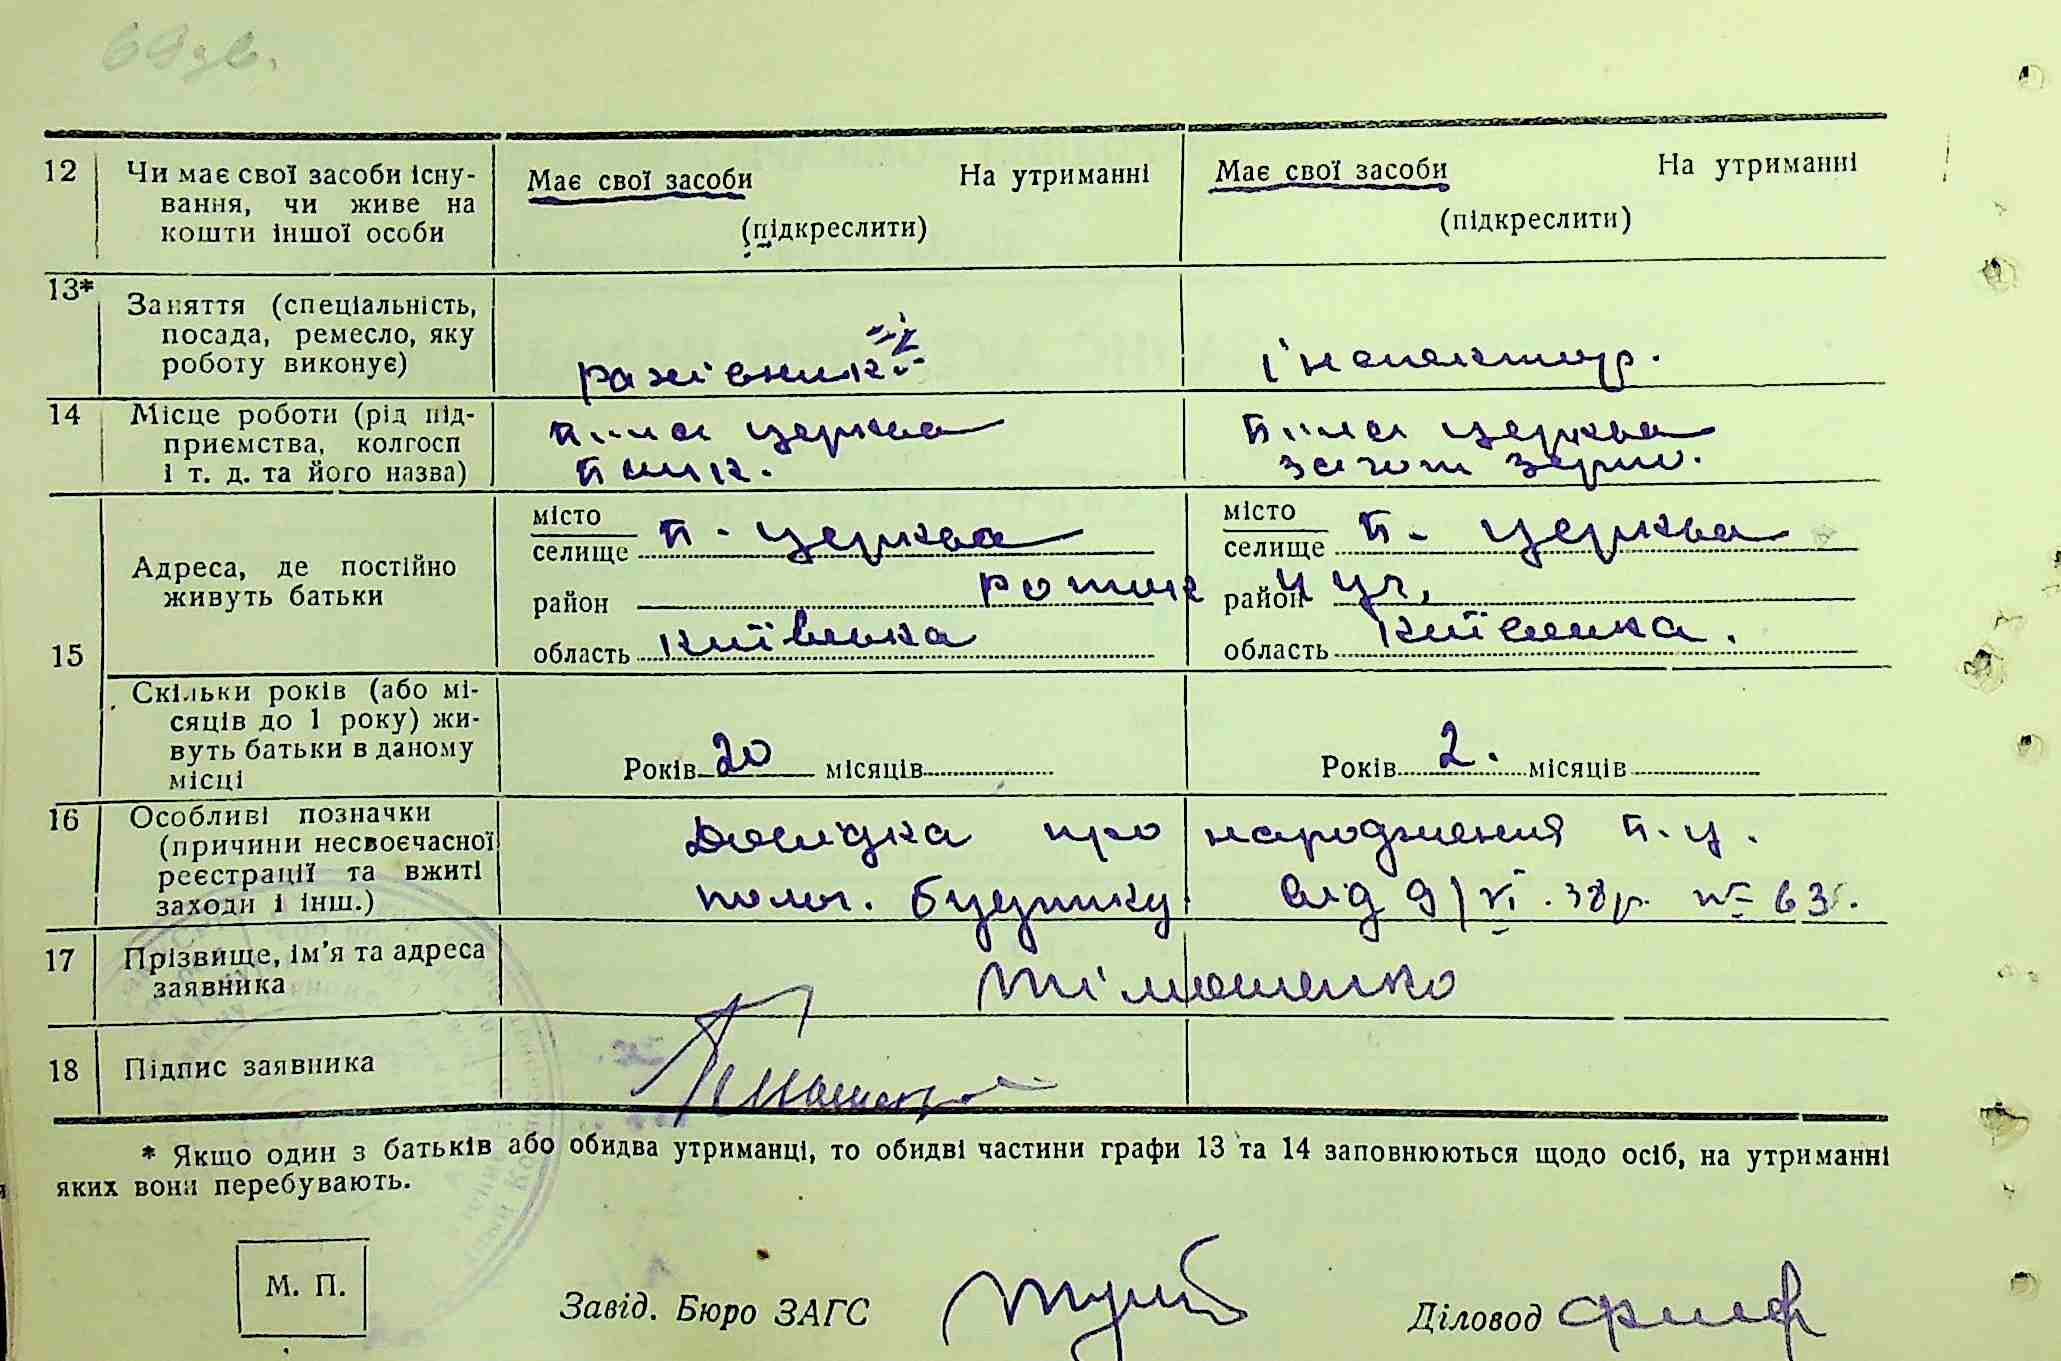 69 зв.
12 Чи має свої засоби існу-
вання, чи живе на
кошти іншої особи
Має свої засоби На утриманні
(підкреслити)
Має свої засоби На утриманні
(підкреслити)
13* Заняття (спеціальність,
посада, ремесло, яку
роботу виконує)
рахівник
інспектор.
14 Місце роботи (рід під-
приємства, колгосп
і т. д. та його назва)
Біла церква
Банк.
Біла церква
загот зерно.
15 Адреса, де постійно
живуть батьки
місто
селище Б. церква
район
область київська
місто
селище Б. церква
район уч.
область київська.
Скільки років (або мі-
сяців до 1 року) жи-
вуть батьки в даному
місці
Років 20 місяців
Років 2. місяців
16 Особливі позначки
(причини несвоєчасної
реєстрації та вжиті
заходи і інш.)
Довідка про народження Б.ц.
полог. будинку від 9/VI.38р. № 63
17 Прізвище, ім'я та адреса
заявника
Тімошенко
18 Підпис заявника
* Якщо один з батьків або обидва утриманці, то обидві частини графи 13 та 14 заповнюються щодо осіб, на утриманні
яких вони перебувають.
М. П.
Завід. Бюро ЗАГС
Діловод